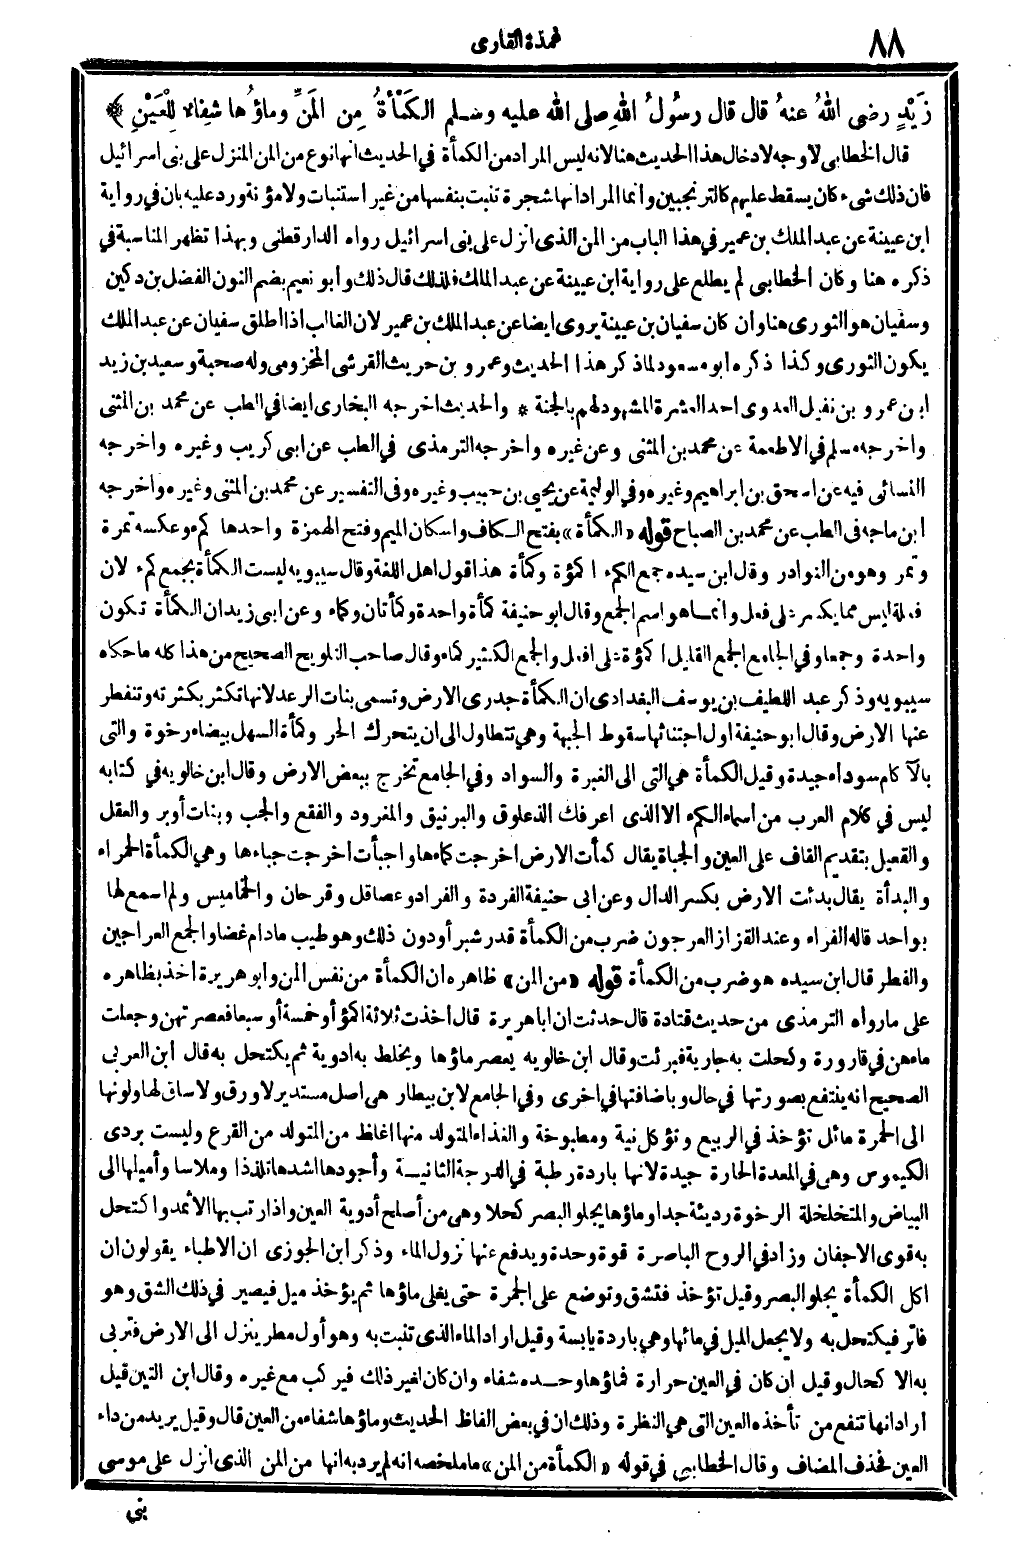 ٨٨
عمدة القارى
زَيْدٍ رضى اللهُ عنهُ قال قال رسُولُ اللهِ صلى الله عليه وسلم الكَمْأَةُ مِن المَنِّ وماؤُها شِفاءٌ لِلْعَيْنِ ﴾
قال الخطابى لا وجه لادخال هذا الحديث هنا لانه ليس المراد من الكمأة في الحديث انها نوع من المن المنزل على بنى اسرائيل
فان ذلك شىء كان يسقط عليهم كالترنجبين وانما المراد انها شجرة تنبت بنفسها من غير استنبات ولا مؤنة ورد عليه بان في رواية
ابن عيينة عن عبد الملك بن عمير في هذا الباب من المن الذى انزل على بنى اسرائيل رواه الدارقطنى وبهذا تظهر المناسبة في
ذكره هنا وكان الخطابى لم يطلع على رواية ابن عيينة عن عبد الملك فلذلك قال ذلك وأبو نعيم بضم النون الفضل بن دكين
وسفيان هو الثورى هنا وان كان سفيان بن عيينة يروى ايضا عن عبد الملك بن عمير لان الغالب اذا اطلق سفيان عن عبد الملك
يكون الثورى وكذا ذكره ابو مسعود لما ذكر هذا الحديث وعمرو بن حريث القرشى المخزومى وله صحبة وسعيد بن زيد
ابن عمرو بن نفيل العدوى احد العشرة المشهود لهم بالجنة * والحديث اخرجه البخارى ايضا في الطب عن محمد بن المثنى
واخرجه مسلم في الاطعمة عن محمد بن المثنى وعن غيره واخرجه الترمذى في الطب عن ابى كريب وغيره واخرجه
النسائى فيه عن اسحق بن ابراهيم وغيره وفي الوليمة عن يحيى بن حبيب وغيره وفى التفسير عن محمد بن المثنى وغيره واخرجه
ابن ماجه فى الطب عن محمد بن الصباح قوله «الكمأة» بفتح الكاف واسكان الميم وفتح الهمزة واحدها كمء وعكسه تمرة
وتمر وهو من النوادر وقال ابن سيده جمع الكمء اكمؤة وكمأة هذا قول اهل اللغة وقال سيبويه ليست الكمأة بجمع كمء لان
فعلة ليس مما يكسر على فعل وانما هو اسم الجمع وقال ابو حنيفة كمأة واحدة وكمأتان وكماء وعن ابى زيد ان الكمأة تكون
واحدة وجمعا وفي الجامع الجمع القليل اكمؤ على افعل والجمع الكثير كماء وقال صاحب التلويح الصحيح من هذا كله ما حكاه
سيبويه وذكر عبد اللطيف بن يوسف البغدادى ان الكمأة جدرى الارض وتسمى بنات الرعد لانها تكثر بكثرته وتنفطر
عنها الارض وقال ابو حنيفة اول اجتنائها سقوط الجبهة وهي تتطاول الى ان يتحرك الحر وكمأة السهل بيضاء رخوة والتى
بالآكام سوداء جيدة وقيل الكمأة هي التى الى الغبرة والسواد وفي الجامع تخرج ببعض الارض وقال ابن خالويه في كتابه
ليس في كلام العرب من أسماء الكمء الا الذى اعرفك الذعلوق والبرنيق والمغرود والفقع والجب وبنات أوبر والعقل
والقعيل بتقديم القاف على العين والجباة يقال كمأت الارض اخرجت كماءها واجبأت اخرجت جباءها وهي الكمأة الحمراء
والبدأة يقال بدئت الارض بكسر الدال وعن ابى حنيفة الفردة والفراد وعصاقل وقرحان والخماميس ولم اسمع لها
بواحد قاله الفراء وعند القزاز العرجون ضرب من الكمأة قدر شبر أو دون ذلك وهو طيب ما دام غضا والجمع العراجين
والفطر قال ابن سيده هو ضرب من الكمأة قوله «من المن» ظاهره ان الكمأة من نفس المن وابو هريرة اخذ بظاهره
على ما رواه الترمذى من حديث قتادة قال حدثت ان ابا هريرة قال اخذت ثلاثة اكمؤ أو خمسة أو سبعا فعصرتهن وجعلت
ماءهن في قارورة وكحلت به جارية فبرئت وقال ابن خالويه يعصر ماؤها ويخلط به ادوية ثم يكتحل به قال ابن العربى
الصحيح انه ينتفع بصورتها في حال وباضافتها في اخرى وفي الجامع لابن بيطار هى اصل مستدير لا ورق ولا ساق لها ولونها
الى الحمرة مائل تؤخذ في الربيع وتؤكل نية ومطبوخة والغذاء المتولد منها اغلظ من المتولد من القرع وليست بردى
الكيموس وهى في المعدة الحارة جيدة لانها باردة رطبة في الدرجة الثانية وأجودها اشدها تلذذا وملاسا وأميلها الى
البياض والمتخلخلة الرخوة رديئة جدا وماؤها يجلو البصر كحلا وهى من أصلح أدوية العين واذا رتب بها الأثمد واكتحل
به قوى الاجفان وزاد في الروح الباصرة قوة وحدة ويدفع عنها نزول الماء وذكر ابن الجوزى ان الاطباء يقولون ان
اكل الكمأة يجلو البصر وقيل تؤخذ فتشق وتوضع على الجمرة حتى يغلى ماؤها ثم يؤخذ ميل فيصير في ذلك الشق وهو
فاتر فيكتحل به ولا يجعل الميل في مائها وهى باردة يابسة وقيل اراد الماء الذى تنبت به وهو أول مطر ينزل الى الارض فتربى
به الاكحال وقيل ان كان في العين حرارة فماؤها وحده شفاء وان كان لغير ذلك فيركب مع غيره وقال ابن التين قيل
أراد انها تنفع من تأخذه العين التى هى النظرة وذلك ان في بعض الفاظ الحديث وماؤها شفاء من العين قال وقيل يريد من داء
العين فحذف المضاف وقال الخطابى في قوله «الكمأة من المن» ما ملخصه انه لم يرد به انها من المن الذى انزل على موسى
بنى